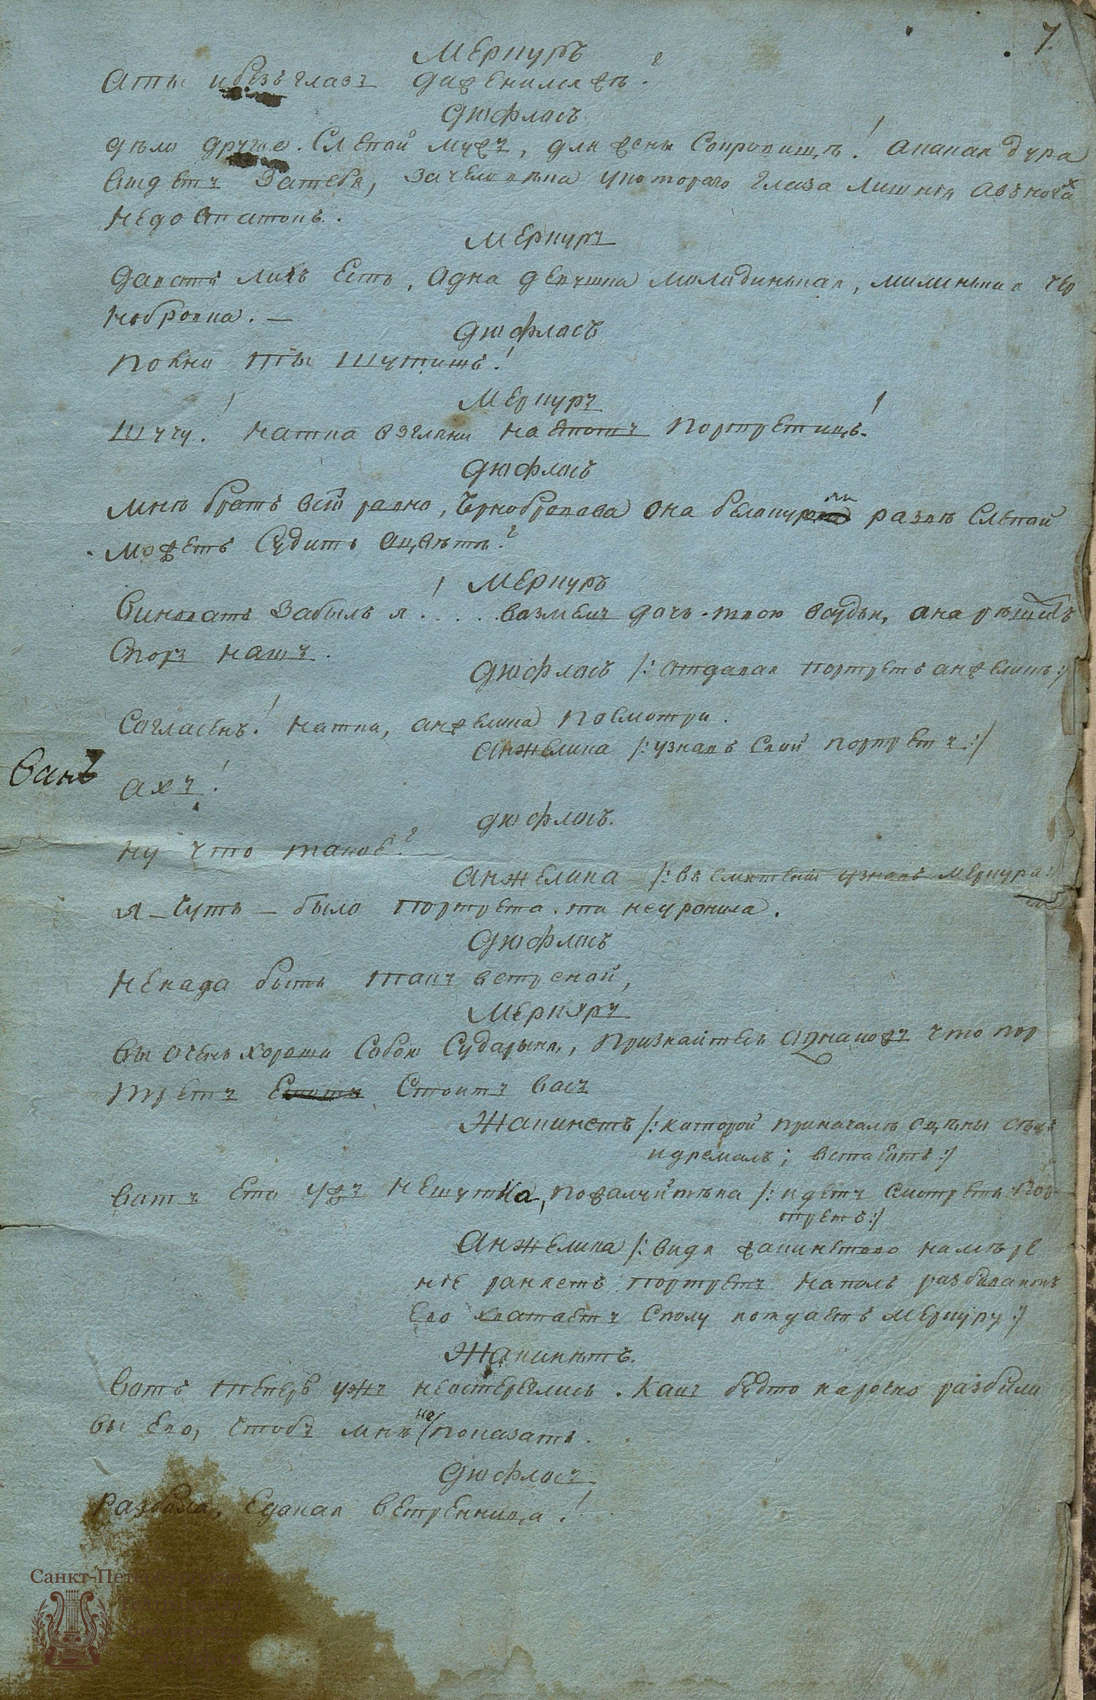 7.
Меркуръ
Аты ибезъ глазъ даженился?
Дюфласъ
дѣло другое. Слѣпой мужъ, для жены Сокровищѣ! а какая дура
выдетъ Затебя, Зачеловѣка у котораго глаза лишнія а въ ногахъ
недостатокъ.
Меркуръ
Давотъ лихъ Есть, Адна девчонка молодинькая, милинькая чер
нобровка. —
Дюфласъ
Полно ты Шутишь!
Меркуръ
Шучу! Натка взгляни На Портретицъ!
Дюфласъ
мнѣ братъ всіо равно, Чернобровая Она белокурая ли развѣ Слепой
можетъ Судить ацвѣтѣ?
Меркуръ
Виноватъ Забылъ я! .... возмемъ дочь-твою въсудьи, Она рѣшитъ
Споръ нашъ.
Дюфласъ /: Отдавая портретъ анжелинѣ :/
Согласенъ! Натка, анжелика посмотри.
Анжелика /: узнавъ Свой портретъ :/
Ахъ!
Дюфласъ.
Ну что такое?
Анжелика /: въ смятеніи узнавъ Меркура :/
Я – Чуть – было портрета та неуронила.
Дюфласъ
Ненада быть такъ ветреной,
Меркуръ
Вы очень хороши Собою Сударыня, признайтесь однакожъ что пор
третъ Стоитъ васъ
Жакинетъ /: каторой
идремалъ; встаетъ :/
Вотъ Ето ужъ нешутка, пожалуйтѣка /: идетъ смотреть Пор-
третъ :/
Анжелика /: видя жакинетово намѣре
ніе раняетъ портретъ наполъ разбиваетъ
Его хватаетъ Сполу Меркуру :/
Жакинетъ.
Вотъ теперь ужъ неостереглись. Какъ будто нарочно разбили
вы Его, чтобъ мнѣ не показать.
Дюфласъ
Разбила, Едакая ветренница!
Санкт-Пет